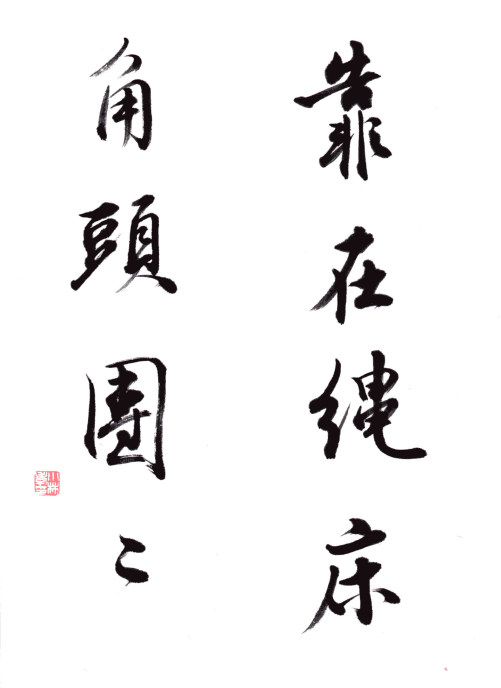 靠在縄床
角頭團〻